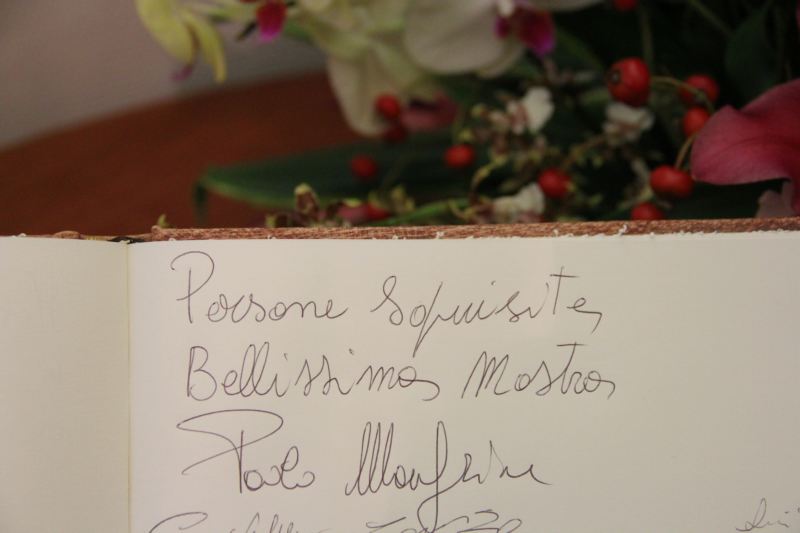 Persone Squisite,
Bellissima Mostra
Paolo Manfrine